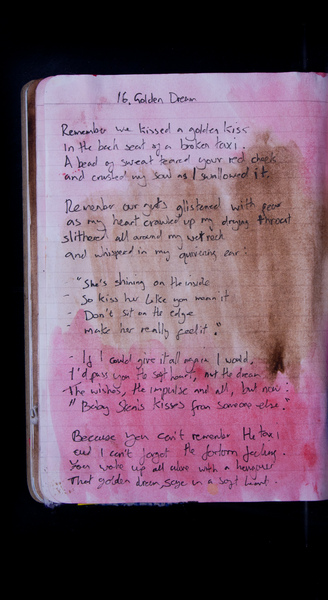 16. Golden Dream
Remember we kissed a golden kiss
In the back seat of a broken taxi.
A bead of sweat teared your red cheek
and crushed my soul as I swallowed it.
Remember our guts glistened with
as my heart crawled up my drying throat
slithered all around my wet neck
and whispered in my quivering ear:
"She's shining on the inside
- So kiss her like you mean it
- Don't sit on the edge
make her really feel it."
- If I could give it all again I would.
I'd pass you the soft heart, not the dream
The wishes, the impulse and all, but now:
" Baby kisses from someone else."
Because you can't remember the taxi
and I can't forget the forlorn feeling.
You woke up all alone with a hangover
That golden dream, in a soft heart.